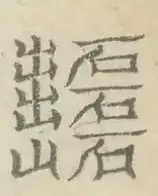 石石石
出出山